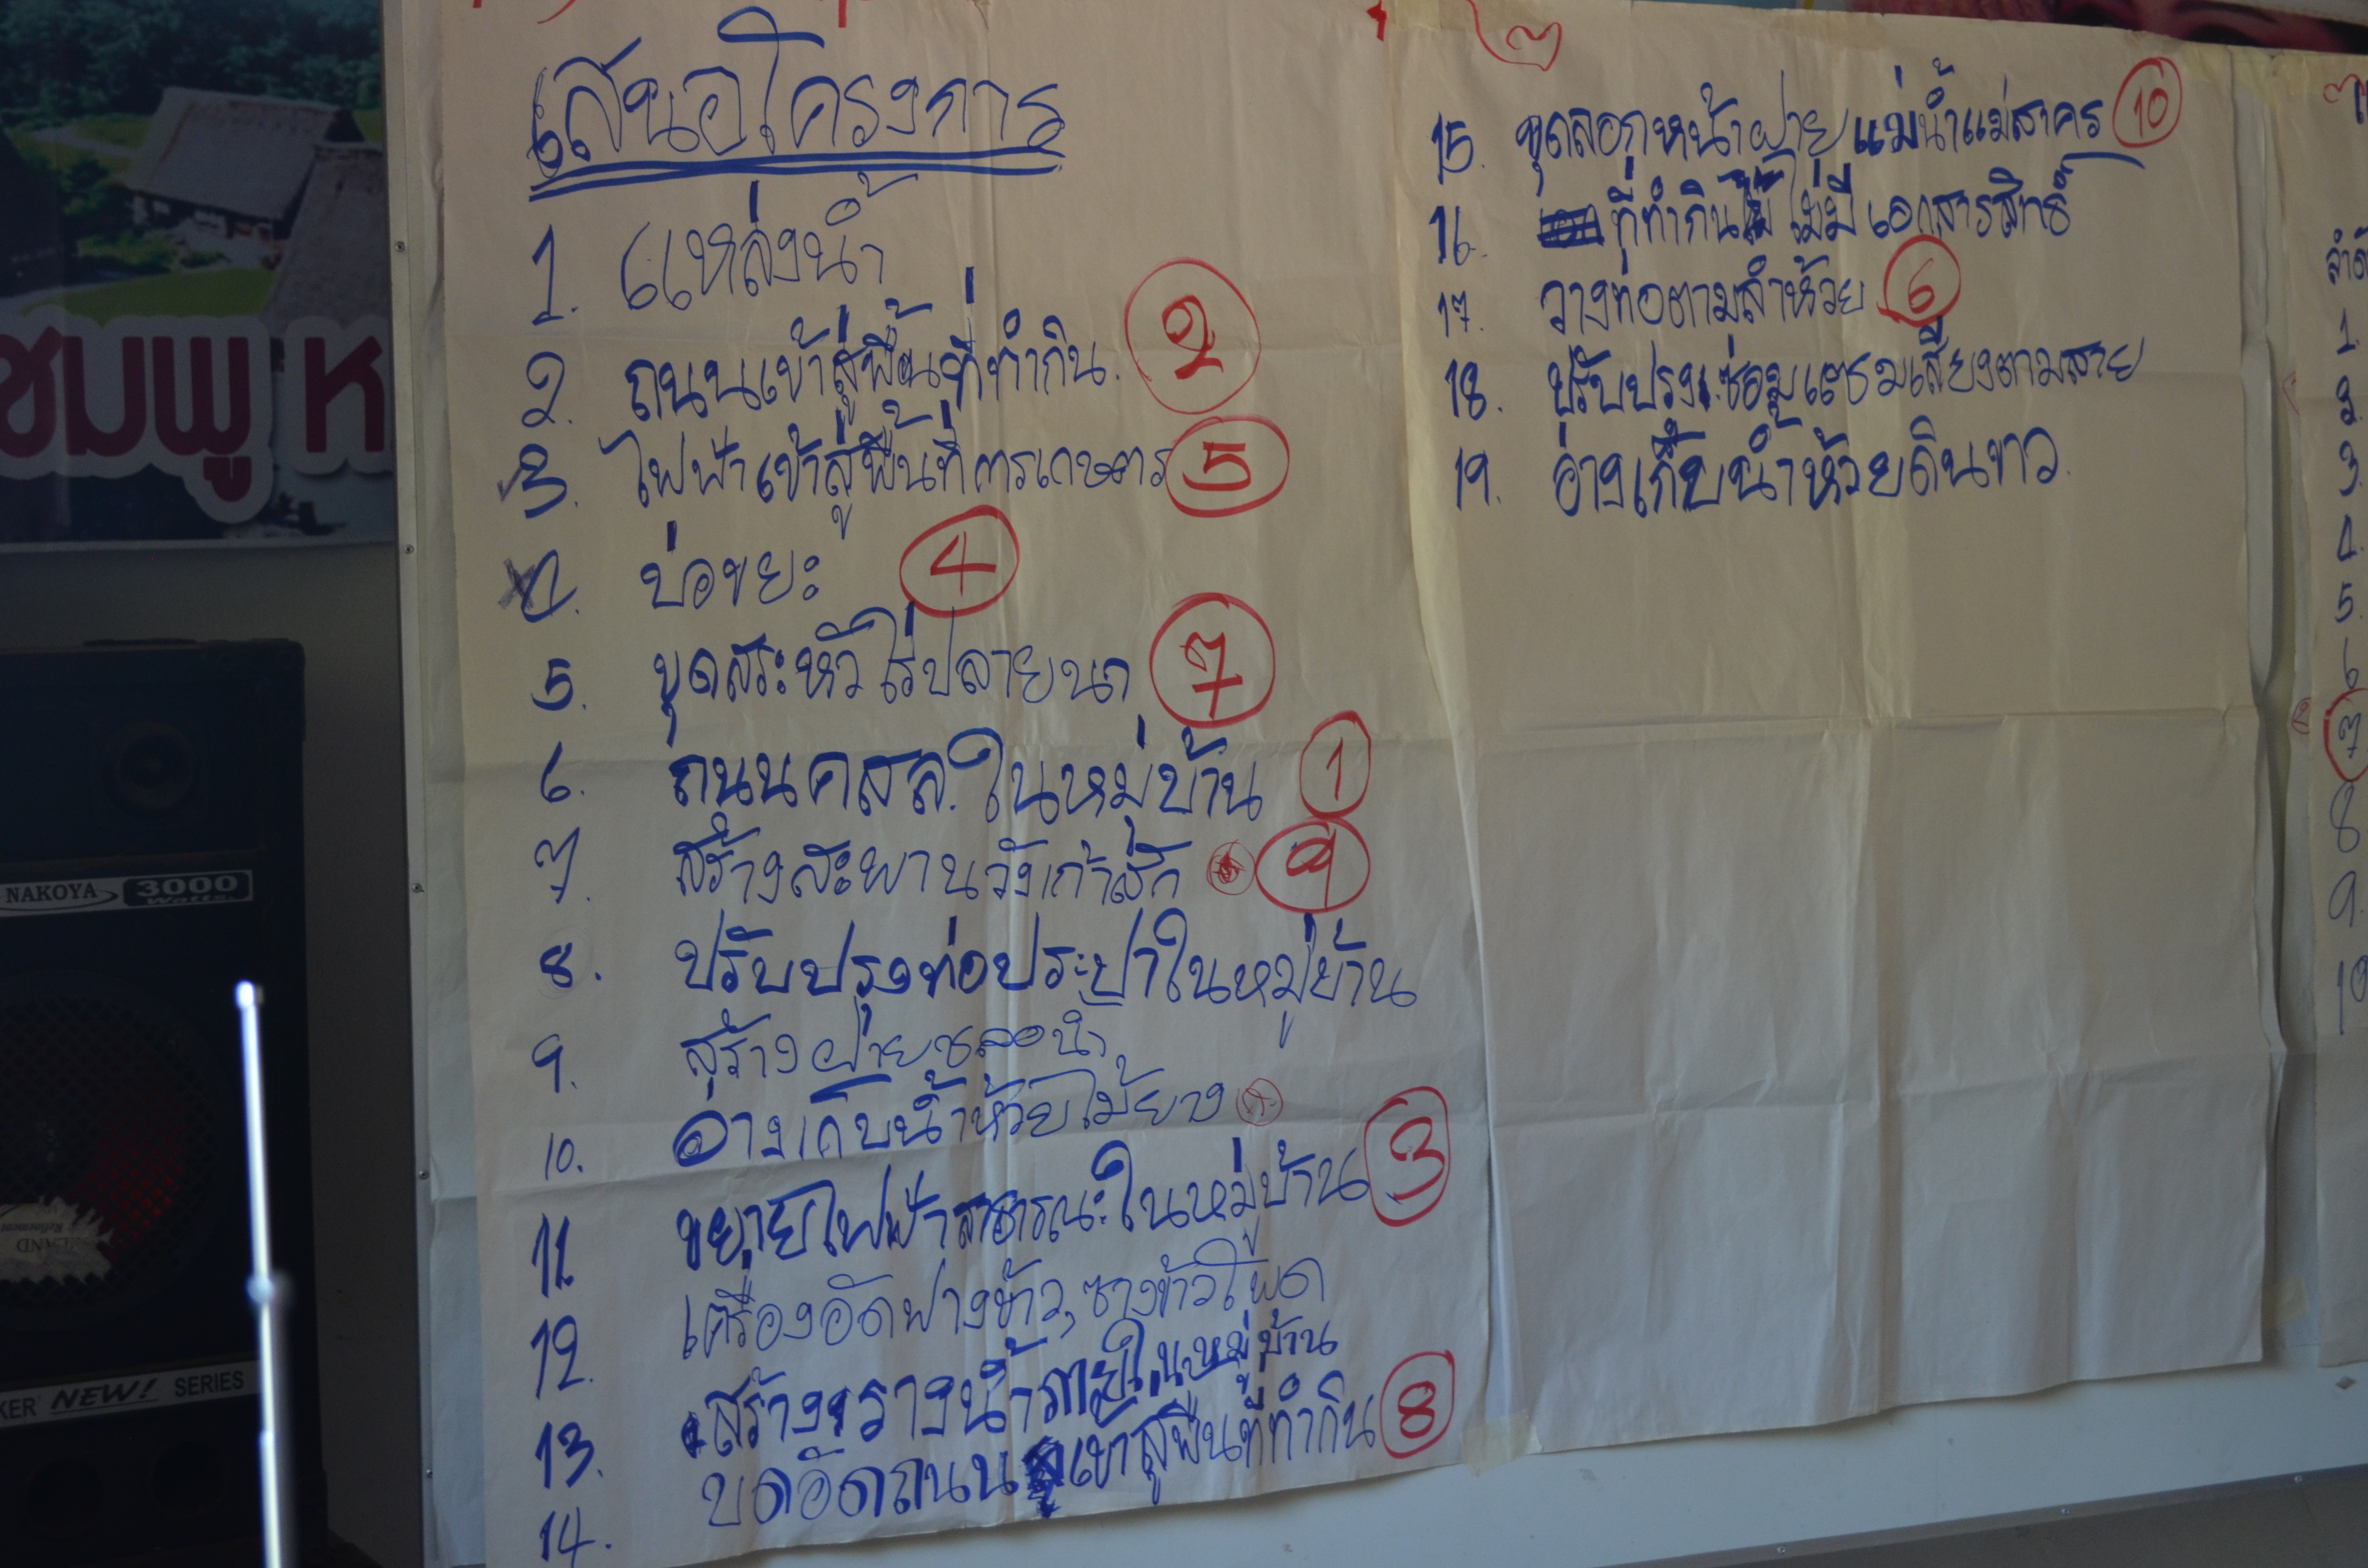 เสนอโครงการ
1. แหล่งน้ำ
2. ถนนเข้าสู่พื้นที่ทำกิน. 2
3. ไฟฟ้าเข้าสู่พื้นที่การเกษตร 5
4. บ่อขยะ 4
5. ขุดสระหัวไร่ปลายนา 7
6. ถนน คสล. ในหมู่บ้าน 1
7. สร้างสะพานวังเก๋าสัก 9
8. ปรับปรุงท่อประปาในหมู่บ้าน
9. สร้างฝายชลอน้ำ
10. อางเก็บน้ำห้วยไม้ยาง
11. ขยายไฟฟ้าสาธารณะในหมู่บ้าน 3
12. เครื่องอัดฟางข้าว, ซางข้าวโพด
13. สร้างรางน้ำภายในหมู่บ้าน
14. บดอัดถนนเข้าสู่พื้นที่ทำกิน 8
15. ขุดลอกหน้าฝายแม่น้ำแม่สาคร 10
16. ที่ทำกินไม่มีเอกสารสิทธิ์
17. วางท่อตามลำห้วย 6
18. ปรับปรุงซ่อมแซมเสียงตามสาย
19. อ่างเก็บน้ำห้วยดินขาว
1.
2.
3.
4.
5.
6
7
8
9.
10
ชมพู ห
NAKOYA 3000 Watts.
KER NEW! SERIES